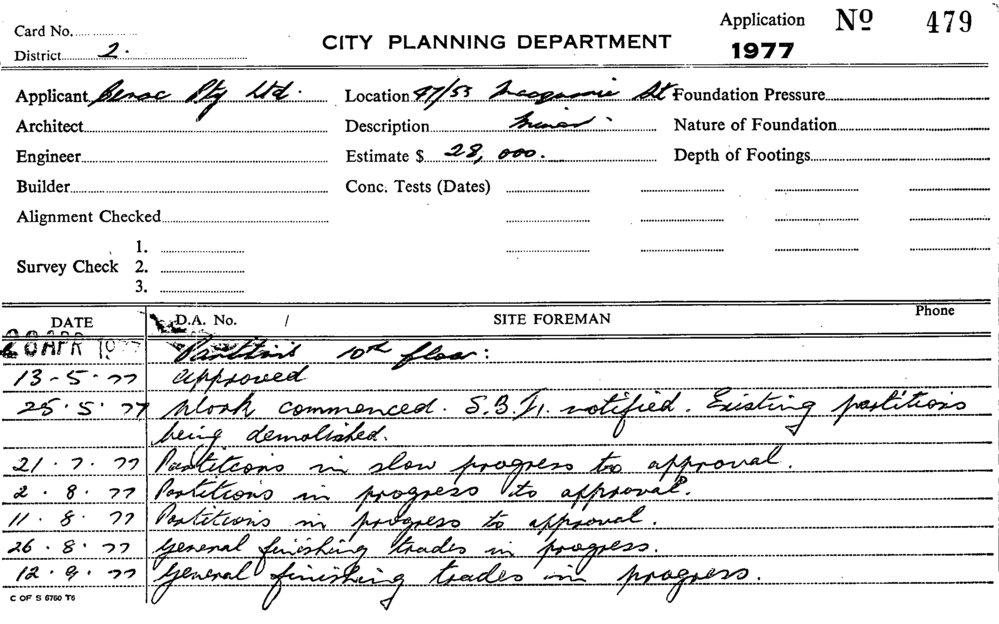 Card No.
District 2.
CITY PLANNING DEPARTMENT
Application No 479
1977
Applicant Pty Ltd. Location 47/53 Macquarie St Foundation Pressure
Architect Description Nature of Foundation
Engineer Estimate $ 28,000. Depth of Footings
Builder Conc. Tests (Dates)
Alignment Checked
1.
Survey Check 2.
3.
DATE D.A. No. / SITE FOREMAN Phone
APR 1977 Partitions 10th floor:
13-5-77 approved
25.5.77 Work commenced. notified. Existing partitions
being demolished.
21.7.77 Partitions in slow progress to approval.
2.8.77 Partitions in progress to approval.
11.8.77 Partitions in progress to approval.
26.8.77 General finishing trades in progress.
12.9.77 General finishing trades in progress.
C OF S 6760 T6